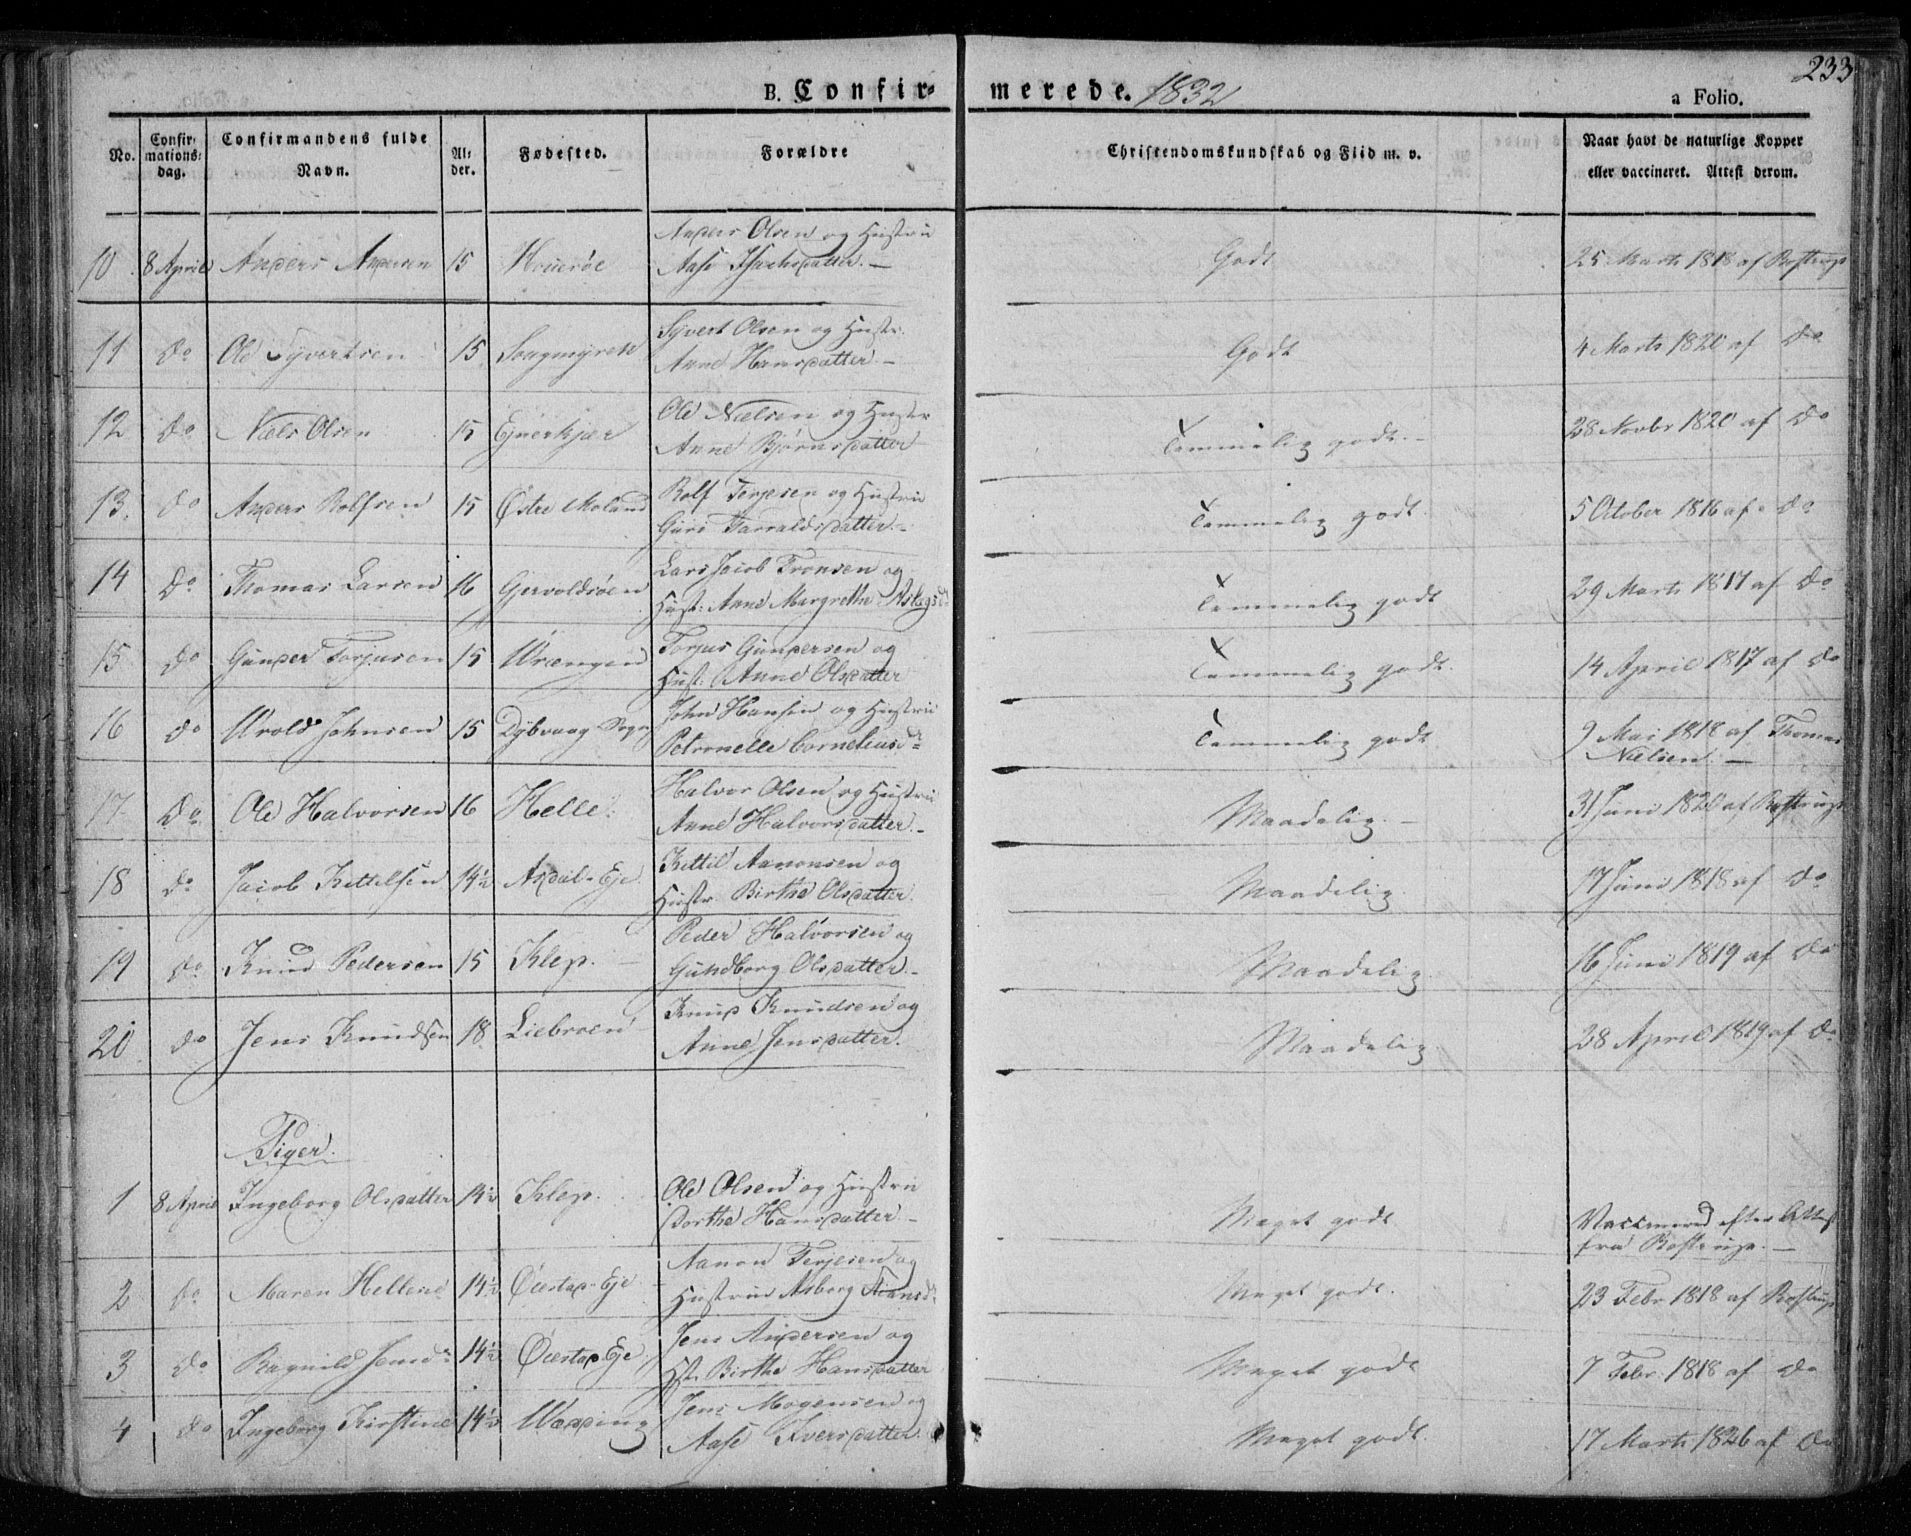 233
B. Confir- merede. 1832 a Folio.
No. Confir-mations-dag. Confirmandens fulde Navn. Al-der. Fødested. Forældre Christendomskundskab og Fliid m. v. Naar havt de naturlige Kopper eller vaccineret. Attest derom.
10. 8 April Anders Andersen 15 Anders Olsen og Hustru
Aase Isachsdatter.— Godt 25 Marts 1818 af Rostrup
11 do Ole Syvertsen 15 Songmyren Syvert Olsen og Hustr.
Anne Hansdatter.— Godt 4 Marts 1820 af do
12 do Niels Olsen 15 Ejnerkjær Ole Nielsen og Hustr
Anne Bjørnsdatter Temmelig godt.— 28 Novbr 1820 af do
13. do Anders Rolfsen 15 Østre Moland Rolf Terjesen og Hustru
Guri Tarraldsdatter.— Temmelig godt. 5 October 1816 af do
14 do Thomas Larsen 16 Gjervoldsøen Lars Jacob Tronsen og
Hust: Anne Margrethe Aslagsd Temmelig godt 29 Marts 1817 af do
15 do Gunder Torjusen 15 Wrængen Torjus Gundersen og
Hust: Anne Olsdatter Temmelig godt. 14 April 1817 af do
16 do Wrold Johnsen 15 Dybvaag Sogn John Hansen og Hustru
Petronelle Corneliusdr Temmelig godt 9 Mai 1818 af Thomas
Nielsen.—
17 do Ole Halvorsen 16 Helle Halvor Olsen og Hustru
Anne Halvorsdatter.— Maadelig.— 31 Juni 1820 af Rostrup
18 do Jacob Kittelsen 14½ Asdal-Eje Kittil Aanonsen og
Hustr. Birthe Olsdatter. Maadelig. 17 Juni 1818 af do
19 do Knud Pedersen 15 Klep.— Peder Halvorsen og
Gundborg Olsdatter.— Maadelig. 16 Juni 1819 af do
20. do Jens Knudsen 18 Liebroen Knud Knudsen og
Anne Jensdatter. Maadelig. 28 April 1819 af do
Piger.
1 8 April Ingeborg Olsdatter 14½ Klep. Ole Olsen og Hustru
Dorthe Hansdatter.— Meget godt Vaccineret efter Attest
fra Rostrup.—
2 do Maren Hellene 14½ Øiestad-Eje Aanon Terjesen og
Hustrue Asborg Meget godt. 23 Febr 1818 af Rostrup
3 do Ragnild Jensdr 14½ Øiestad Eje Jens Andersen og
Hst. Birthe Hansdatter Meget godt 7 Febr. 1818 af do
4 do Ingeborg Kirstine 14½ Wedding Jens Mogensen og
Aase Iversdatter. Meget godt. 17 Marts 1826 af do